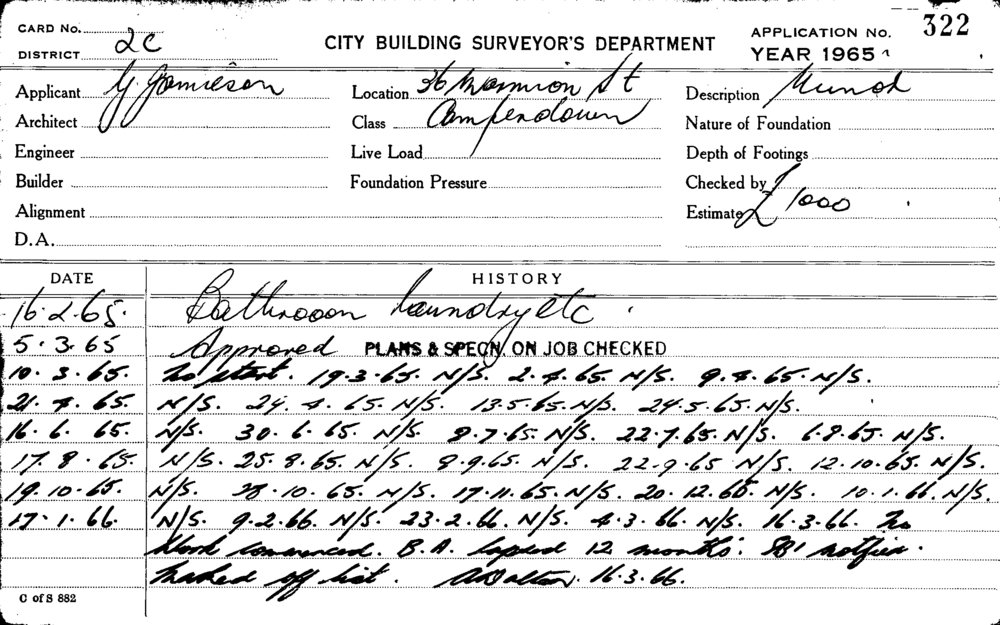 322
CARD No.
DISTRICT 2C
CITY BUILDING SURVEYOR'S DEPARTMENT
APPLICATION No.
YEAR 1965
Applicant G. Jamieson
Location 36 Marmion St
Description
Architect
Class Camperdown
Nature of Foundation
Engineer
Live Load
Depth of Footings
Builder
Foundation Pressure
Checked by
Alignment
Estimate £1000
D.A.
DATE HISTORY
16.2.65. Bathrooom Laundry etc
5.3.65 Approved PLANS & SPECN. ON JOB CHECKED
10.3.65. No start. 19.3.65. N/S. 2.4.65. N/S. 9.4.65. N/S.
21.4.65. N/S. 29.4.65. N/S. 13.5.65. N/S. 24.5.65. N/S.
16.6.65. N/S. 30.6.65. N/S. 8.7.65. N/S. 22.7.65. N/S. 6.8.65. N/S.
17.8.65. N/S. 25.8.65. N/S. 9.9.65. N/S. 22.9.65 N/S. 12.10.65. N/S.
19.10.65. N/S. 28.10.65. N/S. 17.11.65. N/S. 20.12.65 N/S. 10.1.66. N/S.
17.1.66. N/S. 9.2.66. N/S. 23.2.66. N/S. 4.3.66. N/S. 16.3.66. No
Work commenced. B.A. lapsed 12 months. SB1 notified.
Marked off list. A Dalton. 16.3.66.
C of S 882